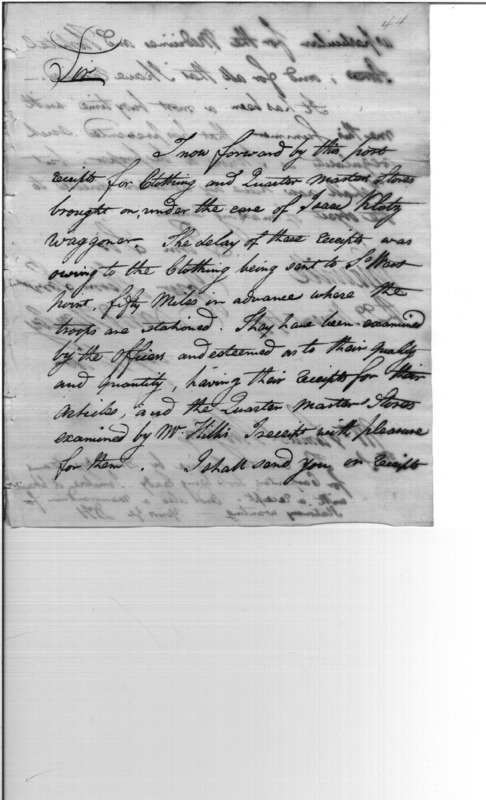 44
Sir
I now forward by this post
receipts for Clothing and Quarter Masters Stores
brought on, under the care of Isaac Klotz
Waggoner. The delay of these receipts was
owing to the Clothing being sent to So West
point, fifty Miles in advance where the
troops are stationed. They have been examined
by the officers and esteemed as to their quality
and quantity, having their receipts for their
articles, and the Quarter Master Stores
examined by Mr. I receipt with pleasure
for them. I shall send you on receipts